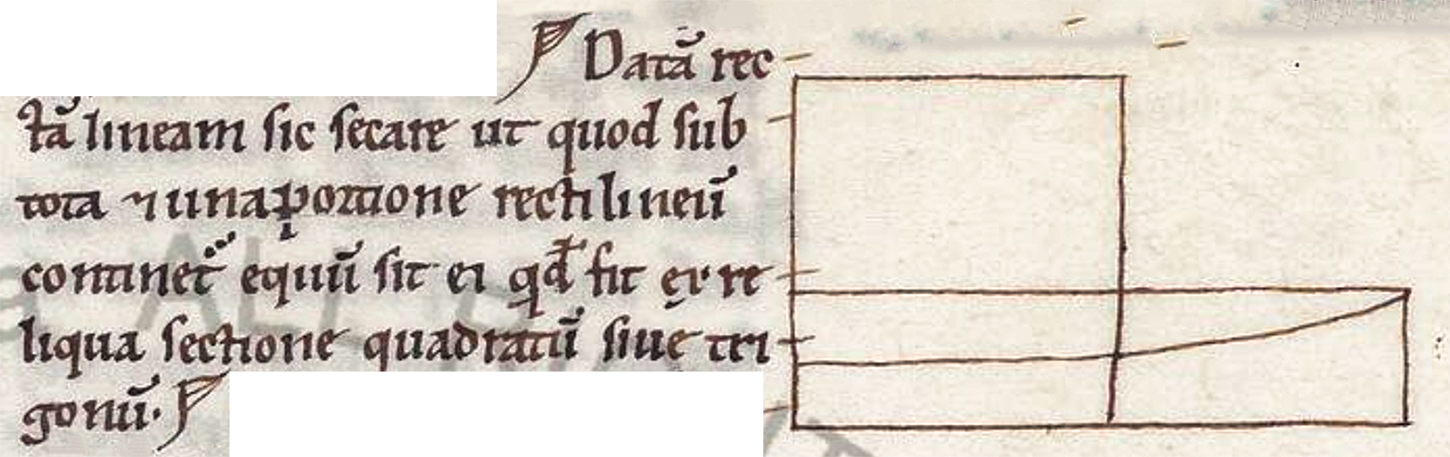 ¶ Datā rec
tā lineam sic secare ut quod sub
tota ⁊ una portione rectilineū
continet᷑ equū sit ei qd̄ fit ex re
liqua sectione quadratū siue tri
gonū. ¶